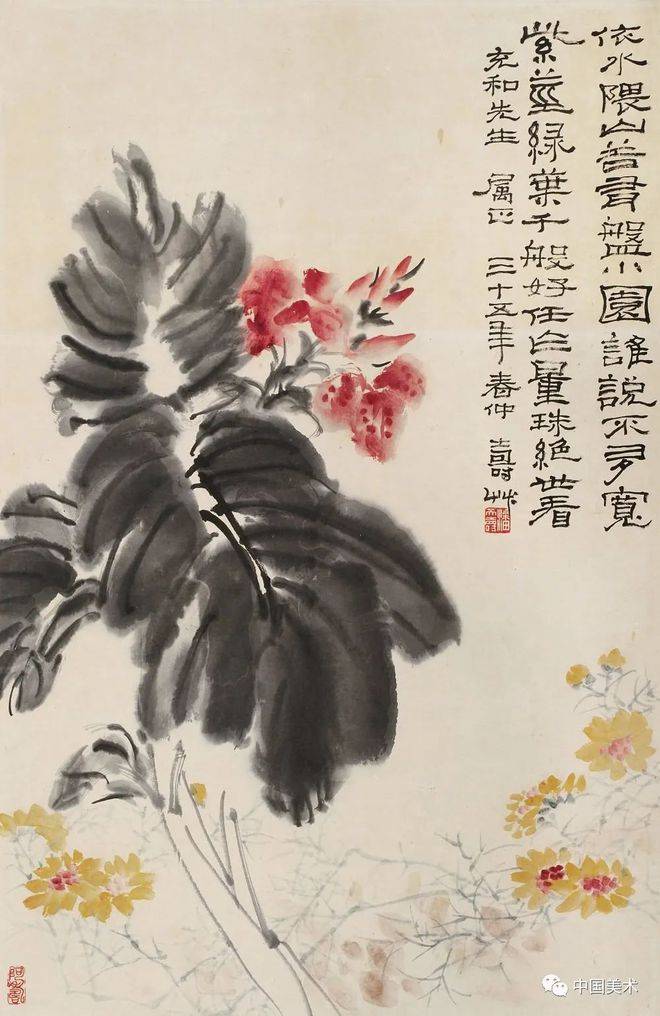 依水隈山盤小園誰說不多寬
紫莖綠葉千般好任量珠絕世看
充和先生 属正 三十五年 春仲 壽艸
中国美术